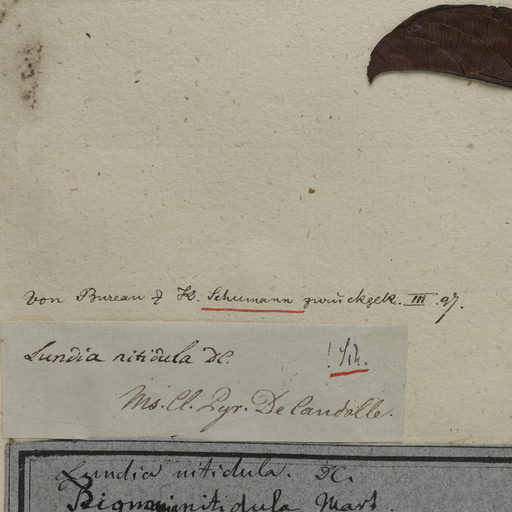 von Bureau & K. Schumann zurückgek. III. 97.
Lundia nitidula DC. ! Sch.
Ms. Cl. Pyr. De Candolle.
Lundia nitidula. DC.
Bignonia nitidula Mart.